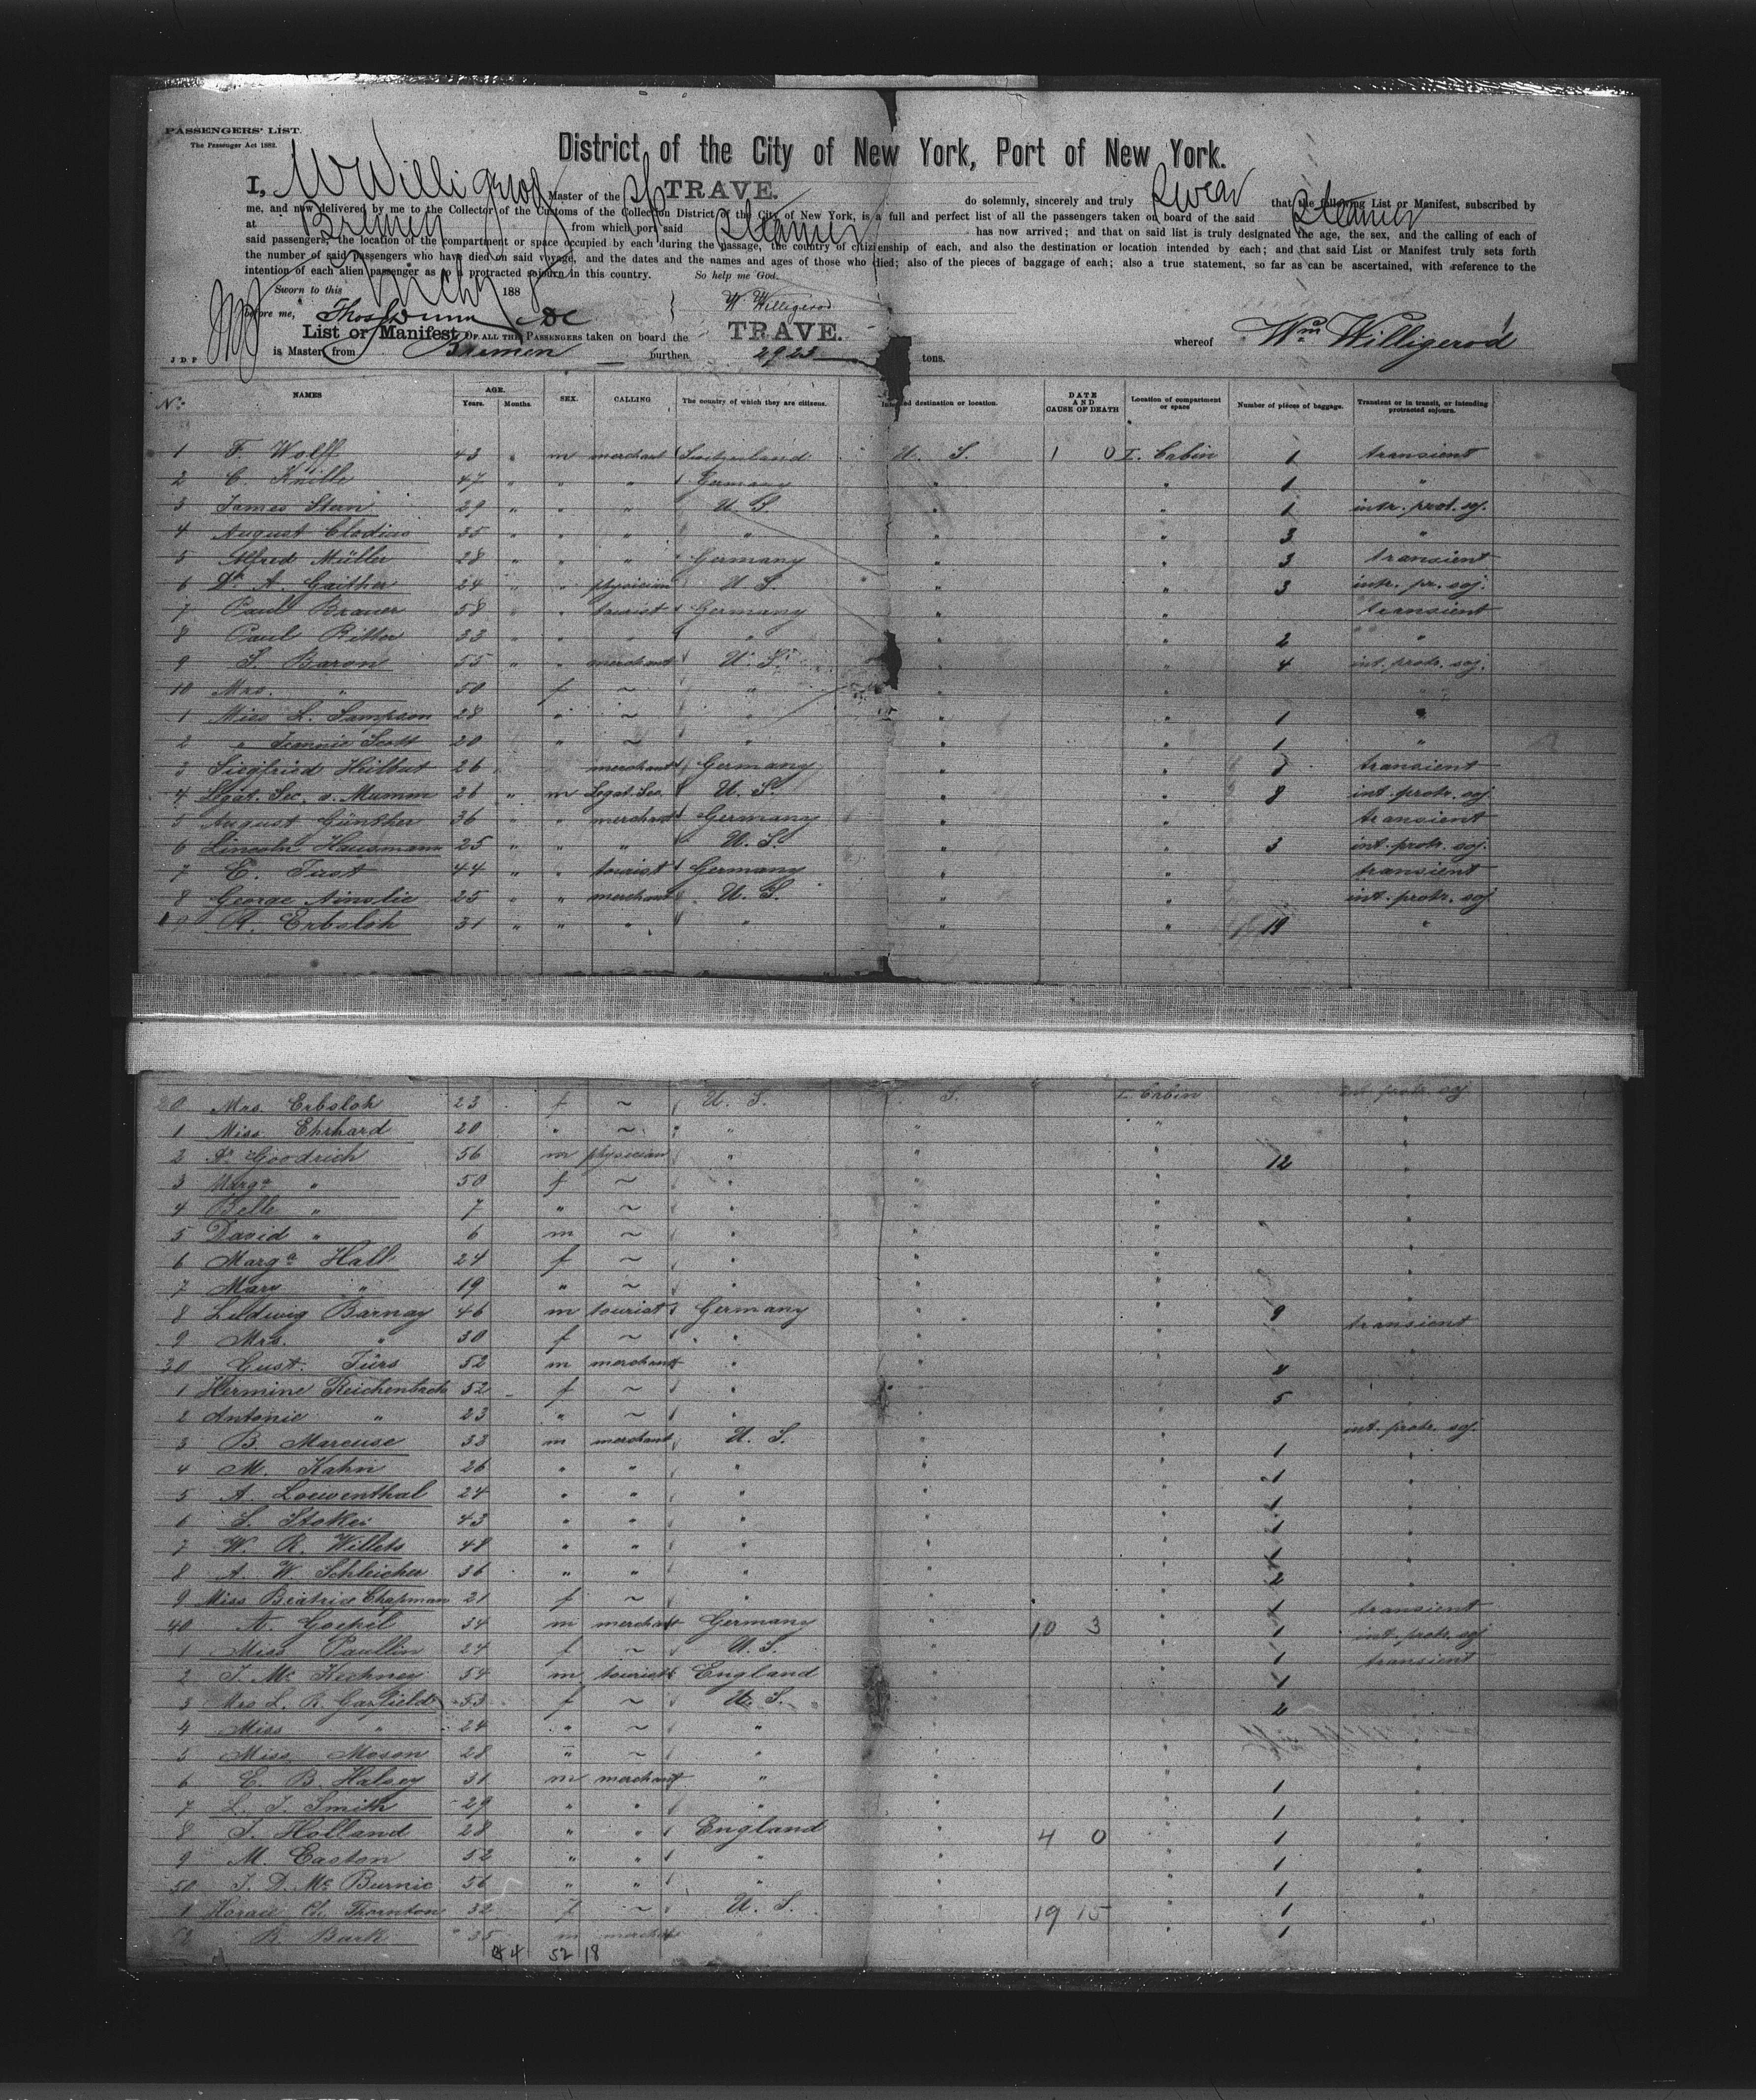 PASSENGERS' LIST.
The Passenger Act 1882.
District of the City of New York, Port of New York.
I, W Willigerod Master of the TRAVE. do solemnly, sincerely and truly Swear that the following List or Manifest, subscribed by
me, and now delivered by me to the Collector of the Customs of the Collection District of the City of New York, is a full and perfect list of all the passengers taken on board of the said Steamer
at Bremen from which port said Steamer has now arrived; and that on said list is truly designated the age, the sex, and the calling of each of
said passengers, the location of the compartment or space occupied by each during the passage, the country of citizenship of each, and also the destination or location intended by each; and that said List or Manifest truly sets forth
the number of said passengers who have died on said voyage, and the dates and the names and ages of those who died; also of the pieces of baggage of each; also a true statement, so far as can be ascertained, with reference to the
intention of each alien passenger as to a protracted sojourn in this country. So help me God.
Sworn to this 188
before me, Thos Dunn W. Willigerod
List or Manifest OF ALL THE PASSENGERS taken on board the TRAVE. whereof Wm Willigerod
J D P is Master, from Bremen burthen 2923 tons.
No. NAMES AGE. Years. Months. SEX. CALLING The country of which they are citizens. Intended destination or location. DATE AND CAUSE OF DEATH Location of compartment or space Number of pieces of baggage. Transient or in transit, or intending protracted sojourn.
1 F. Wolff 43 " m merchant Switzerland U. S. 1 0 I. Cabin 1 transient
2 C. Knille 47 " " " Germany " " 1 "
3 James Stern 29 " " " U S " " 1 intr. prot. soj.
4 August Clodius 35 " " " " " " 3 "
5 Alfred Müller 28 " " " Germany " " 3 transient
6 Dr. A. Gaither 24 " " physician U. S. " " 3 intr. pr. soj.
7 Paul Brauer 58 " " tourist Germany " " transient
8 Paul Ritter 33 " " " " " " 2 "
9 S. Baron 55 " " merchant U. S. " " 4 int. protr. soj.
10 Mrs. " 50 f ~ " " "
1 Miss L. Sampson 28 " ~ " " " 1 "
2 " Jeannie Scott 20 " ~ " " " 1 "
3 Siegfried Heilbut 26 merchant Germany " " 7 transient
4 Legat. Sec. v. Mumm 26 " m Legat. Sec. U. S. " " 8 int. protr. soj
5 August Günther 36 " " merchant Germany " " transient
6 Lincoln Hausmann 25 " " " U. S. " " 3 int. protr. soj.
7 E. Just 44 " " tourist Germany " " transient
8 George Ainslie 25 " " merchant U. S. " " int. protr. soj
19 A. Erbsloh 31 " " " " " " 19 "
20 Mrs. Erbsloh 23 f ~ U. S. S. I. Cabin int. protr. soj
1 Miss Ehrhard 20 " ~ " " " "
2 Dr. Goodrich 56 m physician " " " 12 "
3 Marga " 50 f ~ " " " "
4 Belle " 7 " ~ " " " "
5 David " 6 m ~ " " " "
6 Marga Hall 24 f ~ " " " "
7 Mary " 19 " ~ " " " "
8 Ludwig Barnay 46 m tourist Germany " " 9 transient
9 Mrs. " 30 f ~ " " " "
30 Gust. Fürs 52 m merchant " " "
1 Hermine Reichenbach 52 f ~ " " " 5 "
2 Antonie " 23 " ~ " "
3 B. Marcuse 33 m merchant U. S. " " 1 int. protr. soj.
4 M. Kahn 26 " " " " " 1 "
5 A. Loewenthal 24 " " " " " 1 "
6 S. Stokes 43 " " " " " 1 "
7 W. R. Willets 48 " " " " " 1 "
8 A. W. Schleicher 36 " " " " " 2 "
9 Miss Beatrice Chapman 21 f ~ " " " 1
40 A. Goehel 34 m merchant Germany " 10 3 " 1 transient
1 Miss Paullin 24 f ~ U. S. " " 1 int. protr. soj
2 J. Mc Kechney 54 m tourist England " " 1 transient
3 Mrs L. R. Garfield 53 f ~ U. S. " " 2
4 Miss " 24 " ~ " " "
5 Miss Mason 28 " ~ " " "
6 E. B. Halsey 31 m merchant " " " 1 "
7 L. J. Smith 29 " " " " " 1 "
8 J. Holland 28 " " England " 4 0 " 1 "
9 M. Easton 52 " " " " " 1 "
50 J. D. Mc Burnie 56 " " " " " 1 "
1 Horace E. Thornton 32 f ~ U. S. " 19 15 " 1 "
52 R. Bark 35 m merchant " " " 1
4 52 18